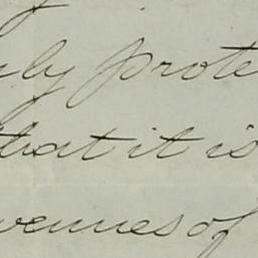 uly prote
that it is
venues of